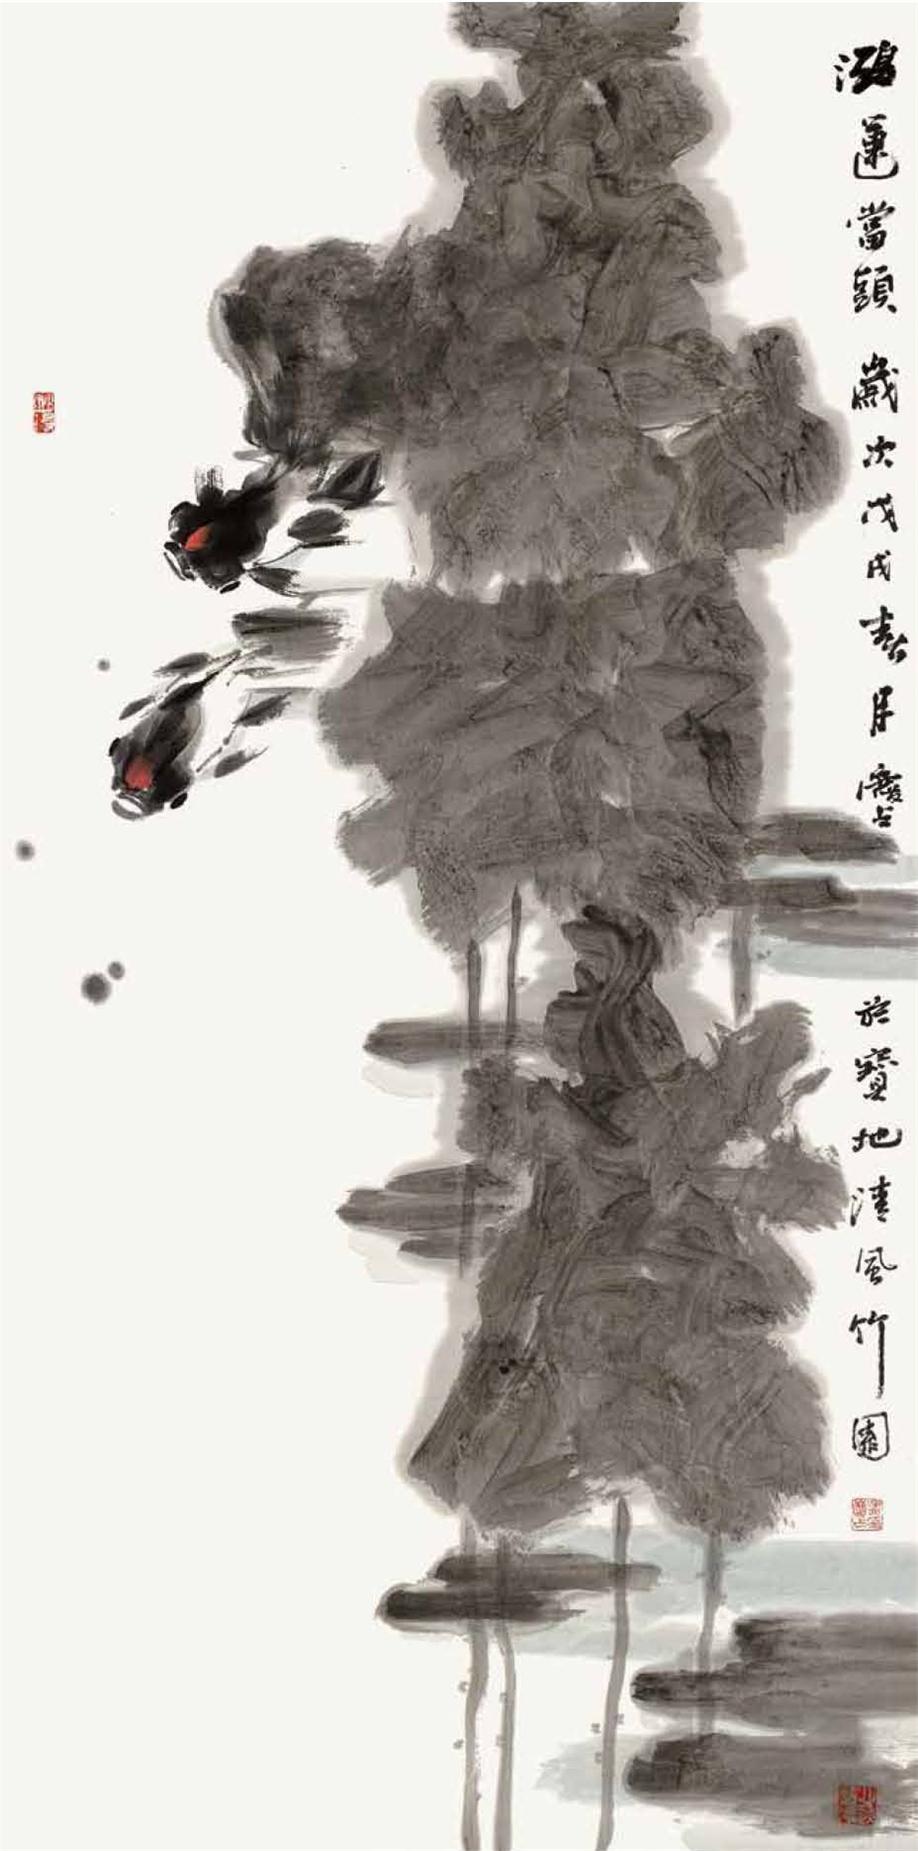 鴻運當頭 歲次戊戌春月慶占 於寶地清風竹園